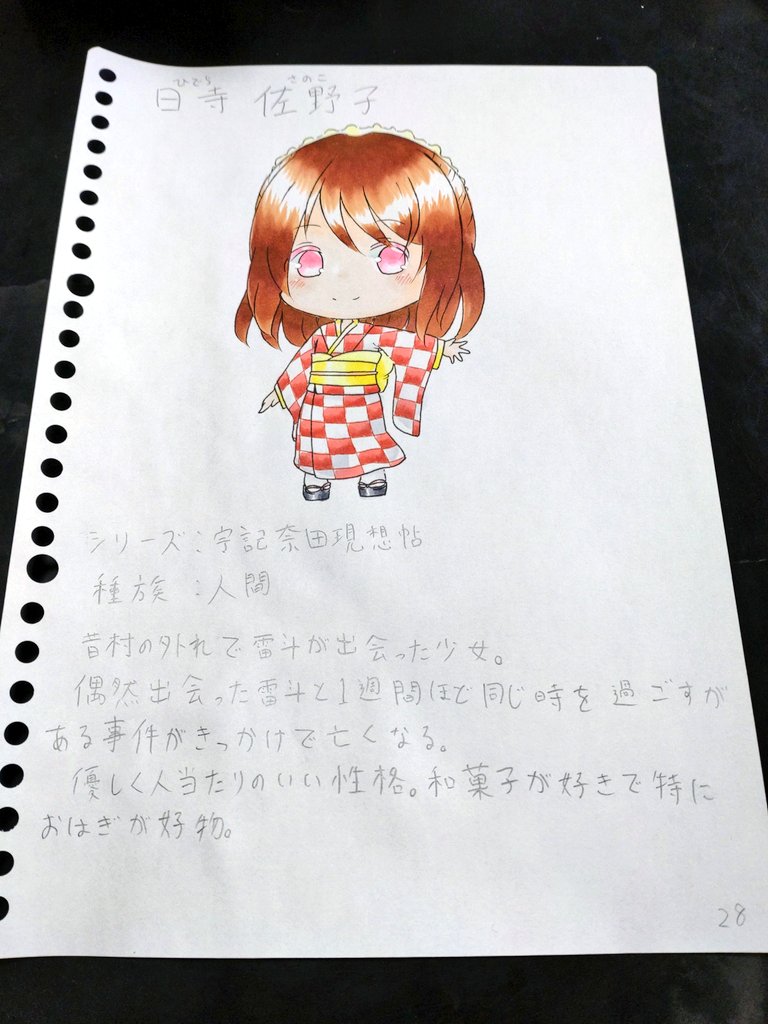 ひでら さのこ
日寺 佐野子
シリーズ:宇記奈田現想帖
種族 :人間
昔村の外れで雷斗が出会った少女。
偶然出会った雷斗と1週間ほど同じ時を過ごすが
ある事件がきっかけで亡くなる。
優しく人当たりのいい性格。和菓子が好きで特に
おはぎが好物。
28